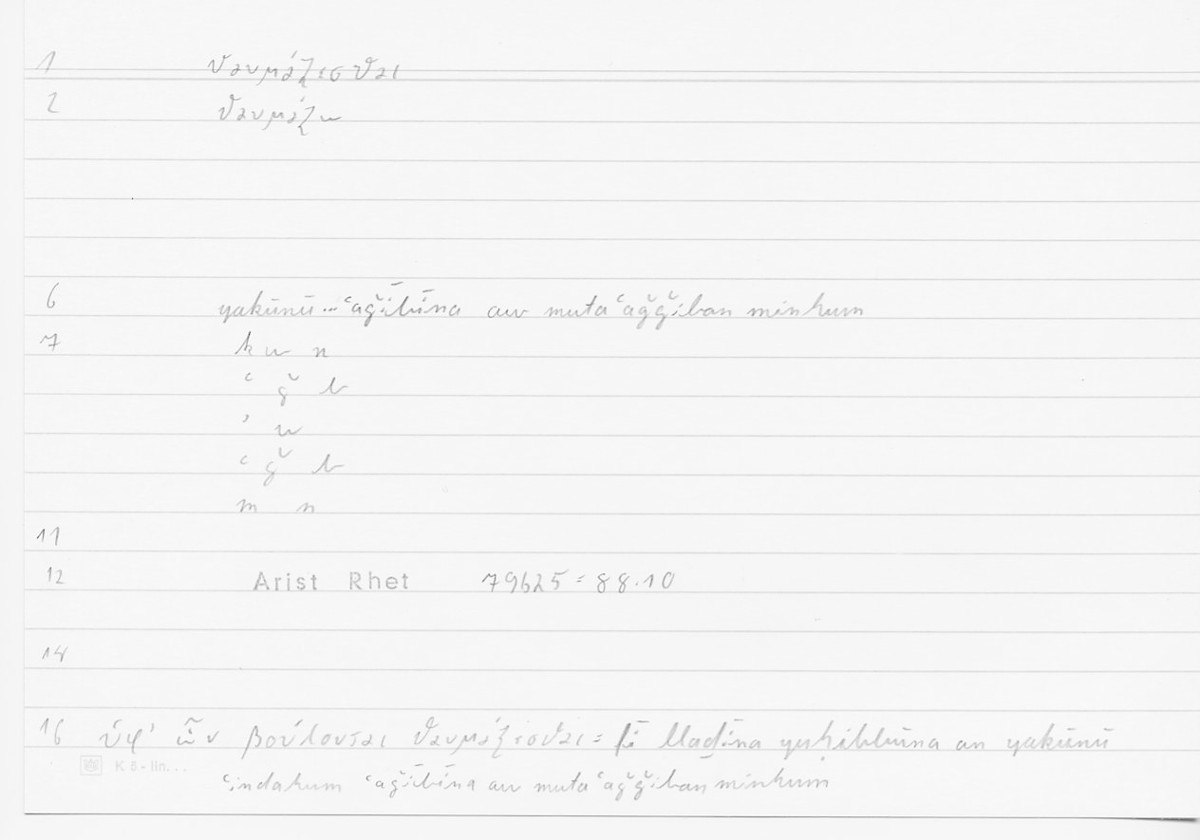 1 θαυμάζεσθαι
2 θαυμάζω
6 yakūnū … ʿaǧībīna aw mutaʿaǧǧiban minhum
7 k w n
ʿ ǧ b
ʾ w
ʿ ǧ b
m n
11
12 Arist Rhet 79b25 = 88.10
14
16 ὑφ' ὧν βούλονται θαυμάζεσθαι = fī llaḏīna yuḥibbūna an yakūnū
ʿindahum ʿaǧībīna aw mutaʿaǧǧiban minhum